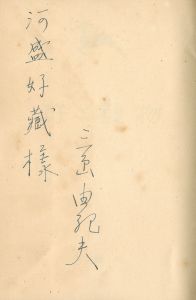 河盛好藏様
三島由紀夫